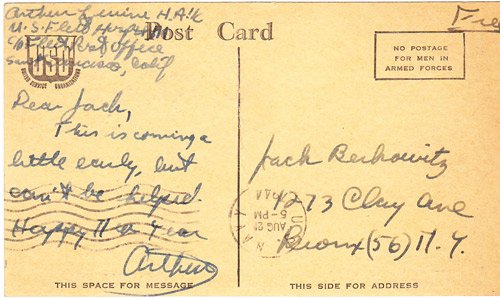 Arthur Levine H.A. 1/c
U.S. Fleet Hospital
c/o Fleet Post Office
San Francisco, Calif
Free
Post Card
USO
UNITED SERVICE ORGANIZATIONS
NO POSTAGE
FOR MEN IN
ARMED FORCES
Dear Jack,
This is coming a
little early, but
can't be helped.
Happy New Year
Arthur
Jack Berkowitz
1273 Clay Ave
Bronx (56) N.Y.
U.S.
NAVY
AUG 2
5-PM
THIS SPACE FOR MESSAGE
THIS SIDE FOR ADDRESS